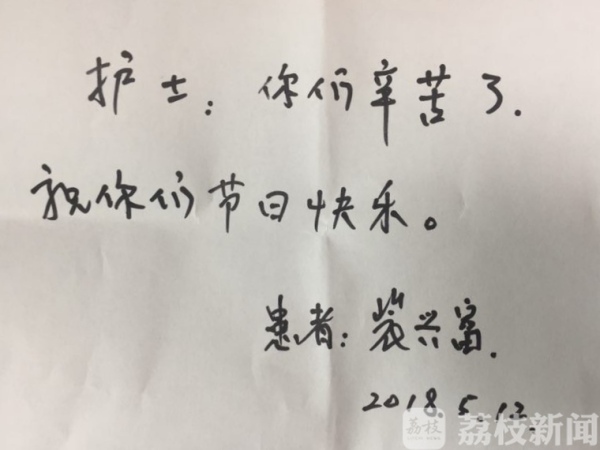 护士：你们辛苦了.
祝你们节日快乐。
患者：裴兴富.
2018.5.12.
荔枝
荔枝新闻